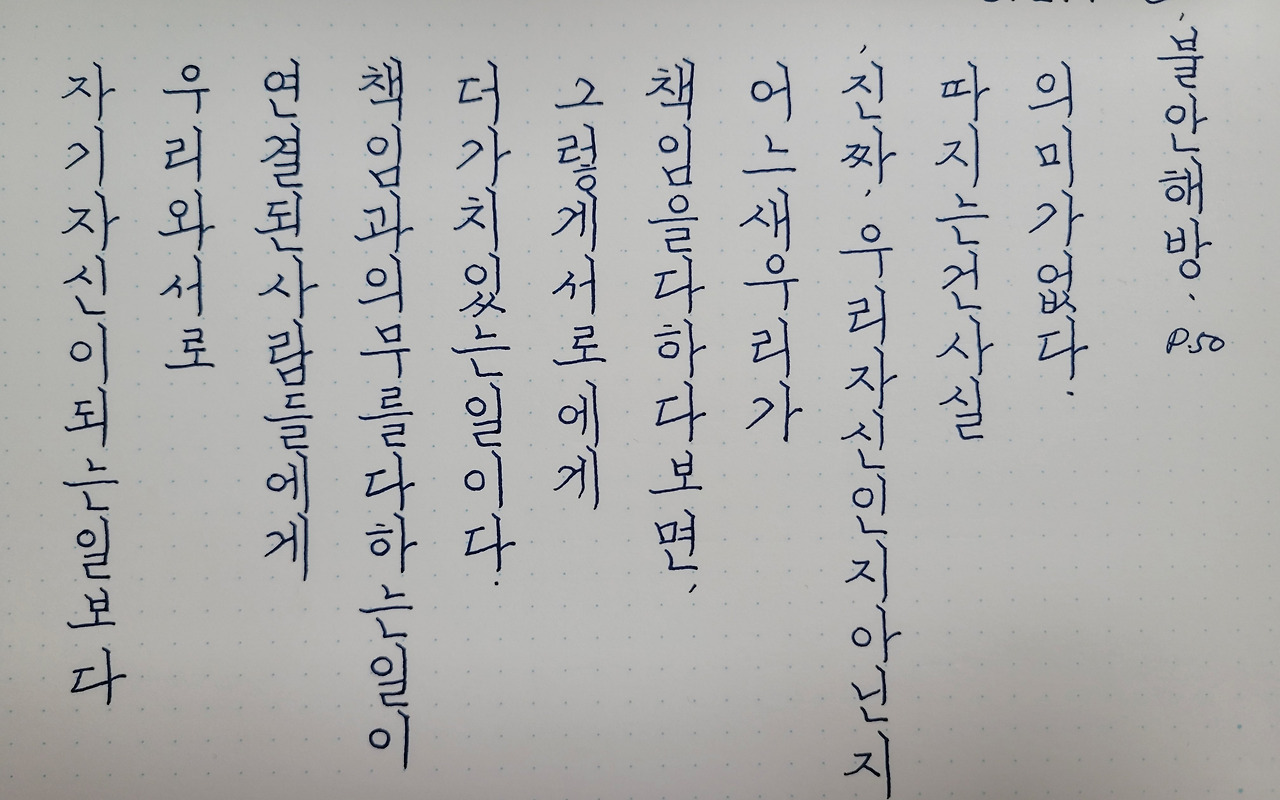 자기자신이되는일보다
우리와서로
연결된사람들에게
책임과의무를다하는일이
더가치있는일이다.
그렇게서로에게
책임을다하다보면,
어느새우리가
'진짜'우리자신인지아닌지
따지는건사실
의미가없다.
'불안해방' P.50